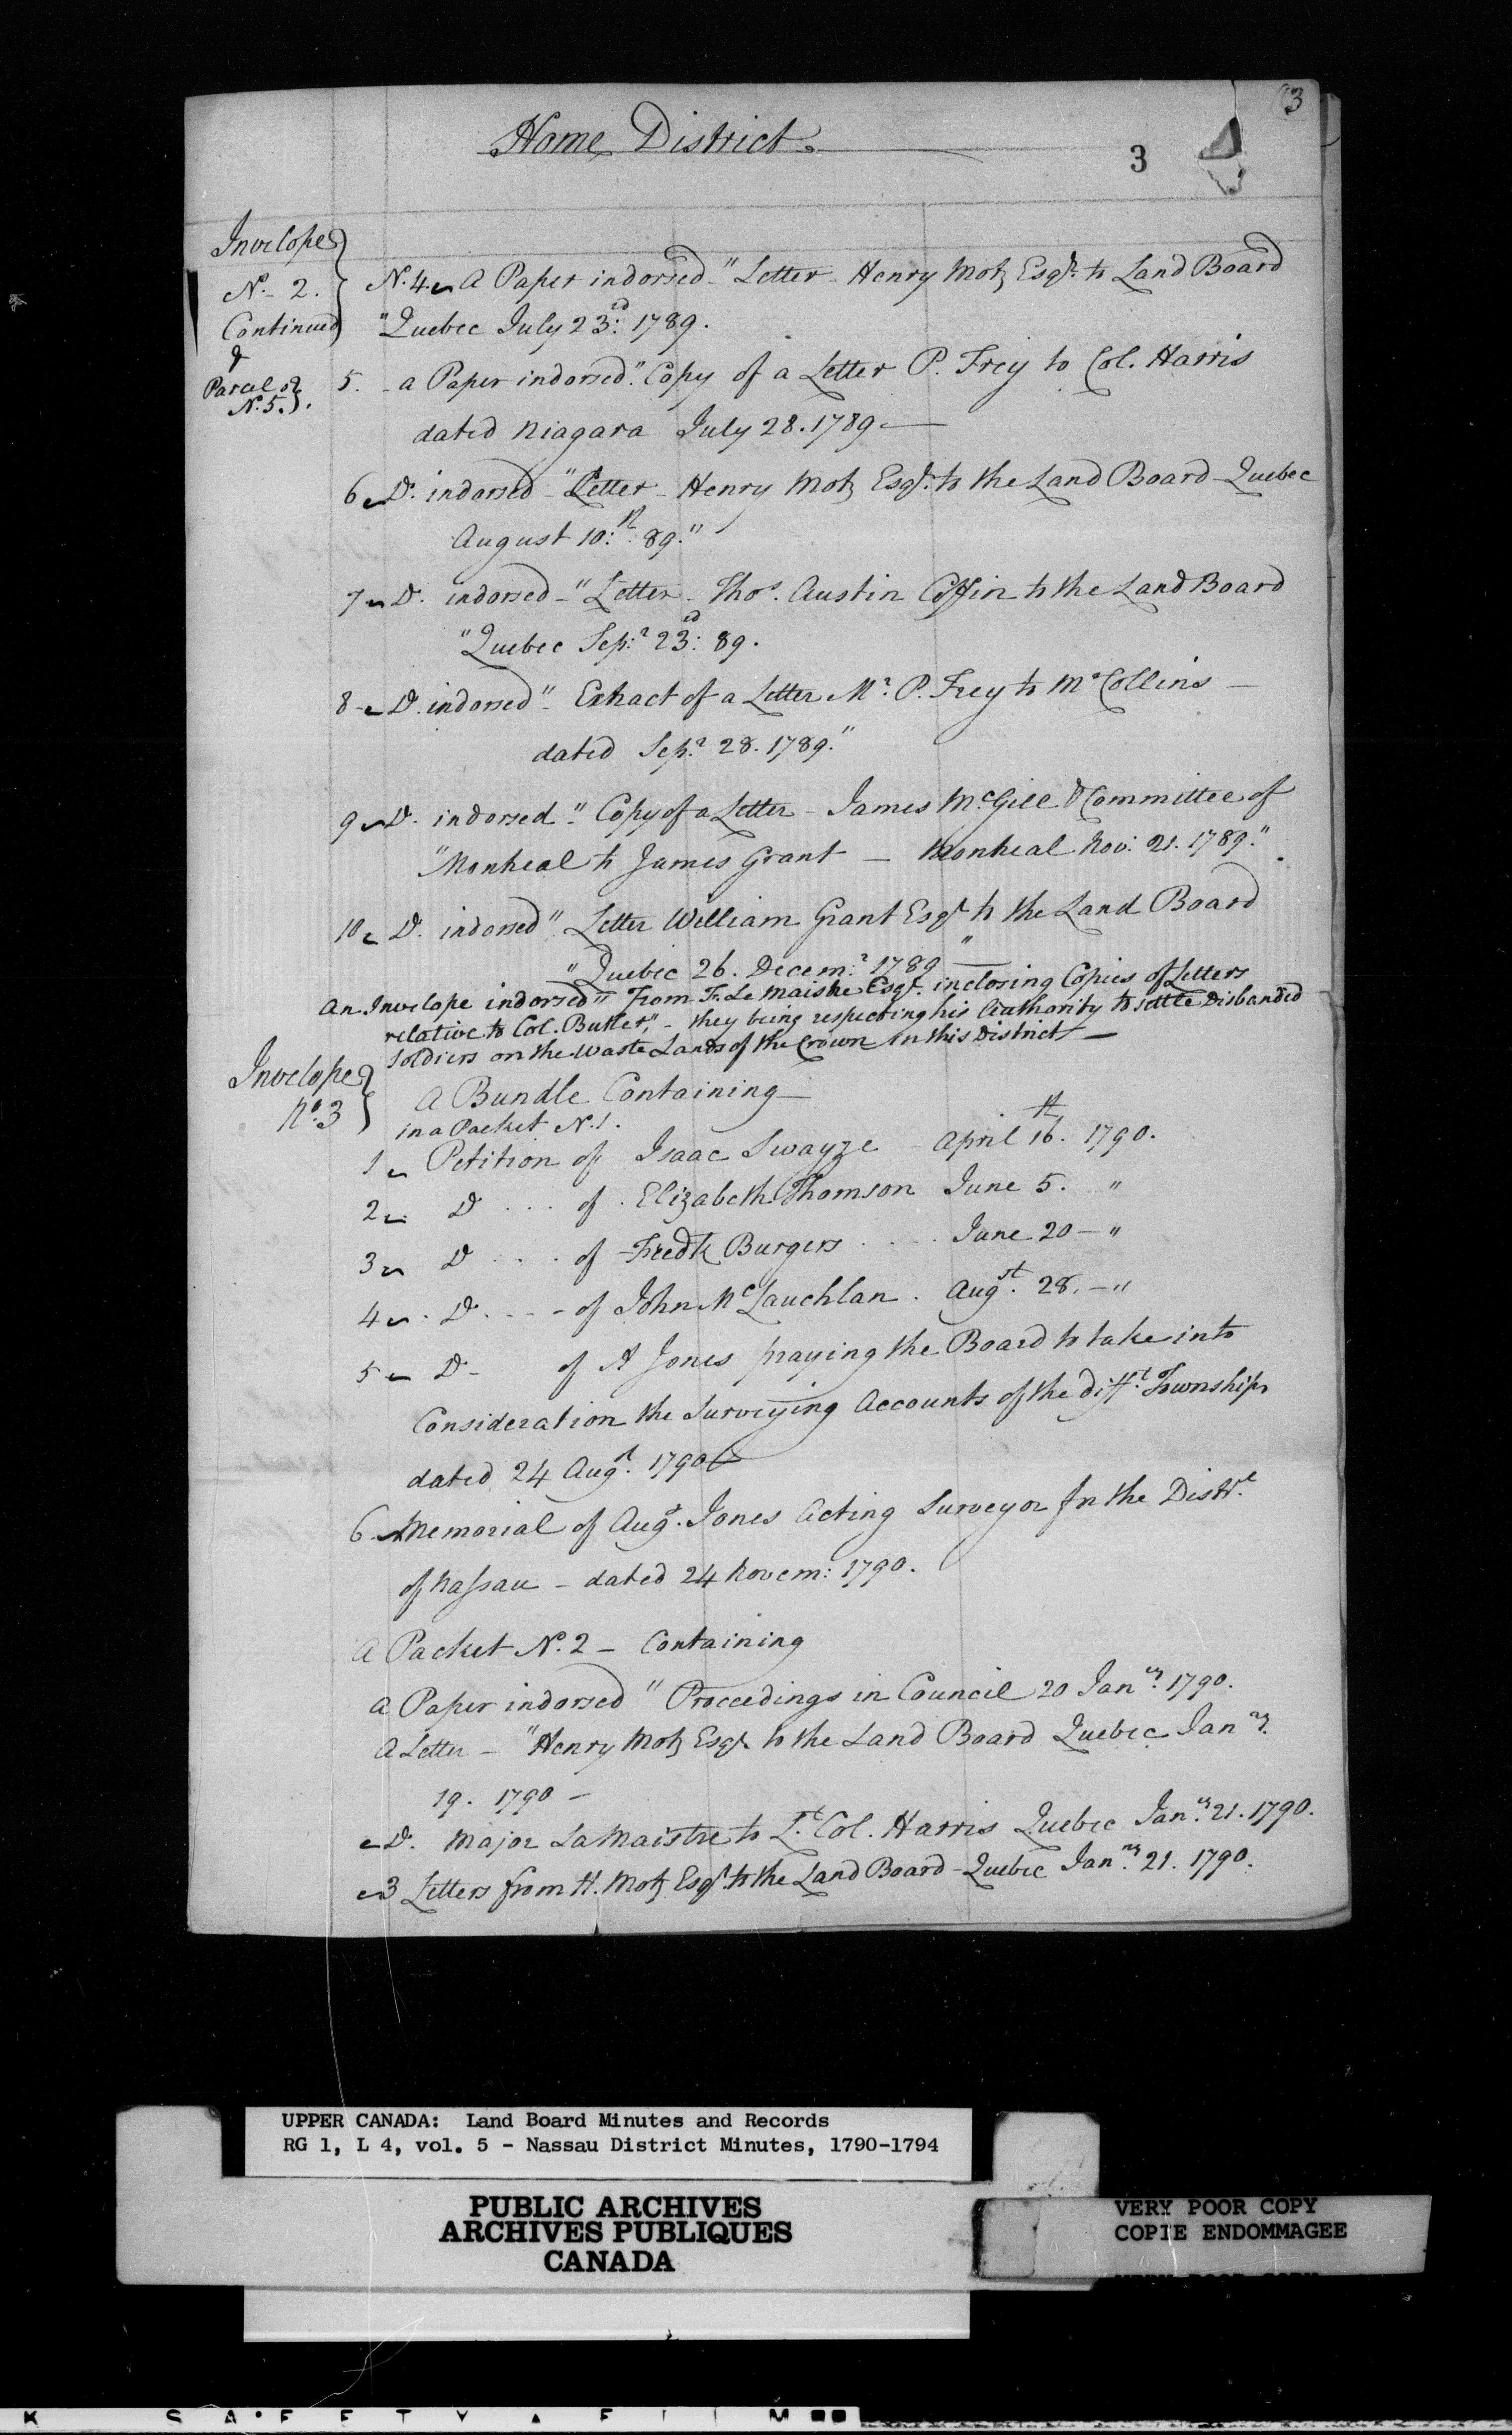 3
Home District
3
Invelope
No. 2.
Continued
&
Parcel of
No. 5.
N. 4 A Paper indorsed "Letter Henry Motz Esqr. to Land Board
"Quebec July 23d: 1789.
5. a Paper indorsed "Copy of a Letter P. Frey to Col. Harris
dated Niagara July 28. 1789 —
6 Do. indorsed "Letter Henry Motz Esqr. to the Land Board Quebec
August 10th: 89."
7 Do. indorsed "Letter Thos. Austin Coffin to the Land Board
"Quebec Sepr. 23d: 89.
8 Do. indorsed "Extract of a Letter Mr. P. Frey to Mr. Collins —
dated Sepr. 28. 1789."
9 Do. indorsed "Copy of a Letter James McGill & Committee of
"Montreal to James Grant — Montreal Nov: 21. 1789."
10 Do. indorsed "Letter William Grant Esqr. to the Land Board
"Quebec 26. Decemr. 1789 "
An Invelope indorsed "From F. Le Maistre Esqr. inclosing Copies of Letters
relative to Col. Butler", — they being respecting his Authority to settle Disbanded
Soldiers on the Waste Lands of the Crown in this District —
Invelope
No. 3
A Bundle Containing —
in a Packet N. 1.
1 Petition of Isaac Swayze April 16th. 1790.
2 Do ... of Elizabeth Thomson June 5. "
3 Do ... of Fredk Burgers .... June 20 — "
4 Do. ... of John McLauchlan . Augst. 28. — "
5 Do — of A Jones praying the Board to take into
Consideration the Surveying Accounts of the difft. Townships
dated 24 Augt. 1790
6 Memorial of Augs. Jones Acting Surveyor for the Distrt.
of Nassau — dated 24 Novem: 1790.
A Packet No. 2 — Containing
A Paper indorsed "Proceedings in Council 20 Jany. 1790.
A Letter — "Henry Motz Esqr. to the Land Board Quebec Jany.
19. 1790 —
Do. Major La Maistre to Lt. Col. Harris Quebec Jany. 21. 1790.
3 Letters from H. Motz Esqr. to the Land Board — Quebec Jany. 21. 1790.
UPPER CANADA: Land Board Minutes and Records
RG 1, L 4, vol. 5 - Nassau District Minutes, 1790-1794
PUBLIC ARCHIVES
ARCHIVES PUBLIQUES
CANADA
VERY POOR COPY
COPIE ENDOMMAGEE